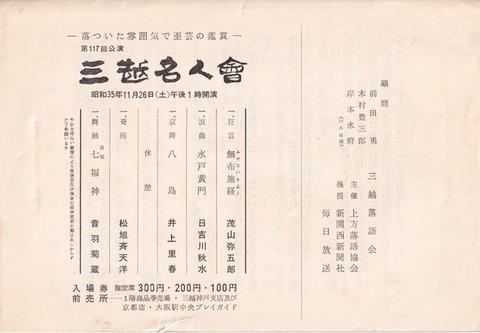 顧問
前田勇
木村豊三郎
岸本水府
(いろは順)
三越落語会
主催 上方落語協会
後援 新関西新聞社
毎日放送
―落ついた雰囲気で至芸の鑑賞―
第117回公演
三越名人會
昭和35年11月26日(土)午後1時開演
一、狂言 無布施経 茂山弥五郎
一、浪曲 水戸黄門 日吉川秋水
一、京舞 八島 井上里春
休憩
一、奇術 松旭斉天洋
一、舞踊 長唄 七福神 音羽菊蔵
入場券 指定席 300円・200円・100円
前売所 ……1階商品券売場・三越神戸支店及び
京都店・大阪駅中央プレイガイド